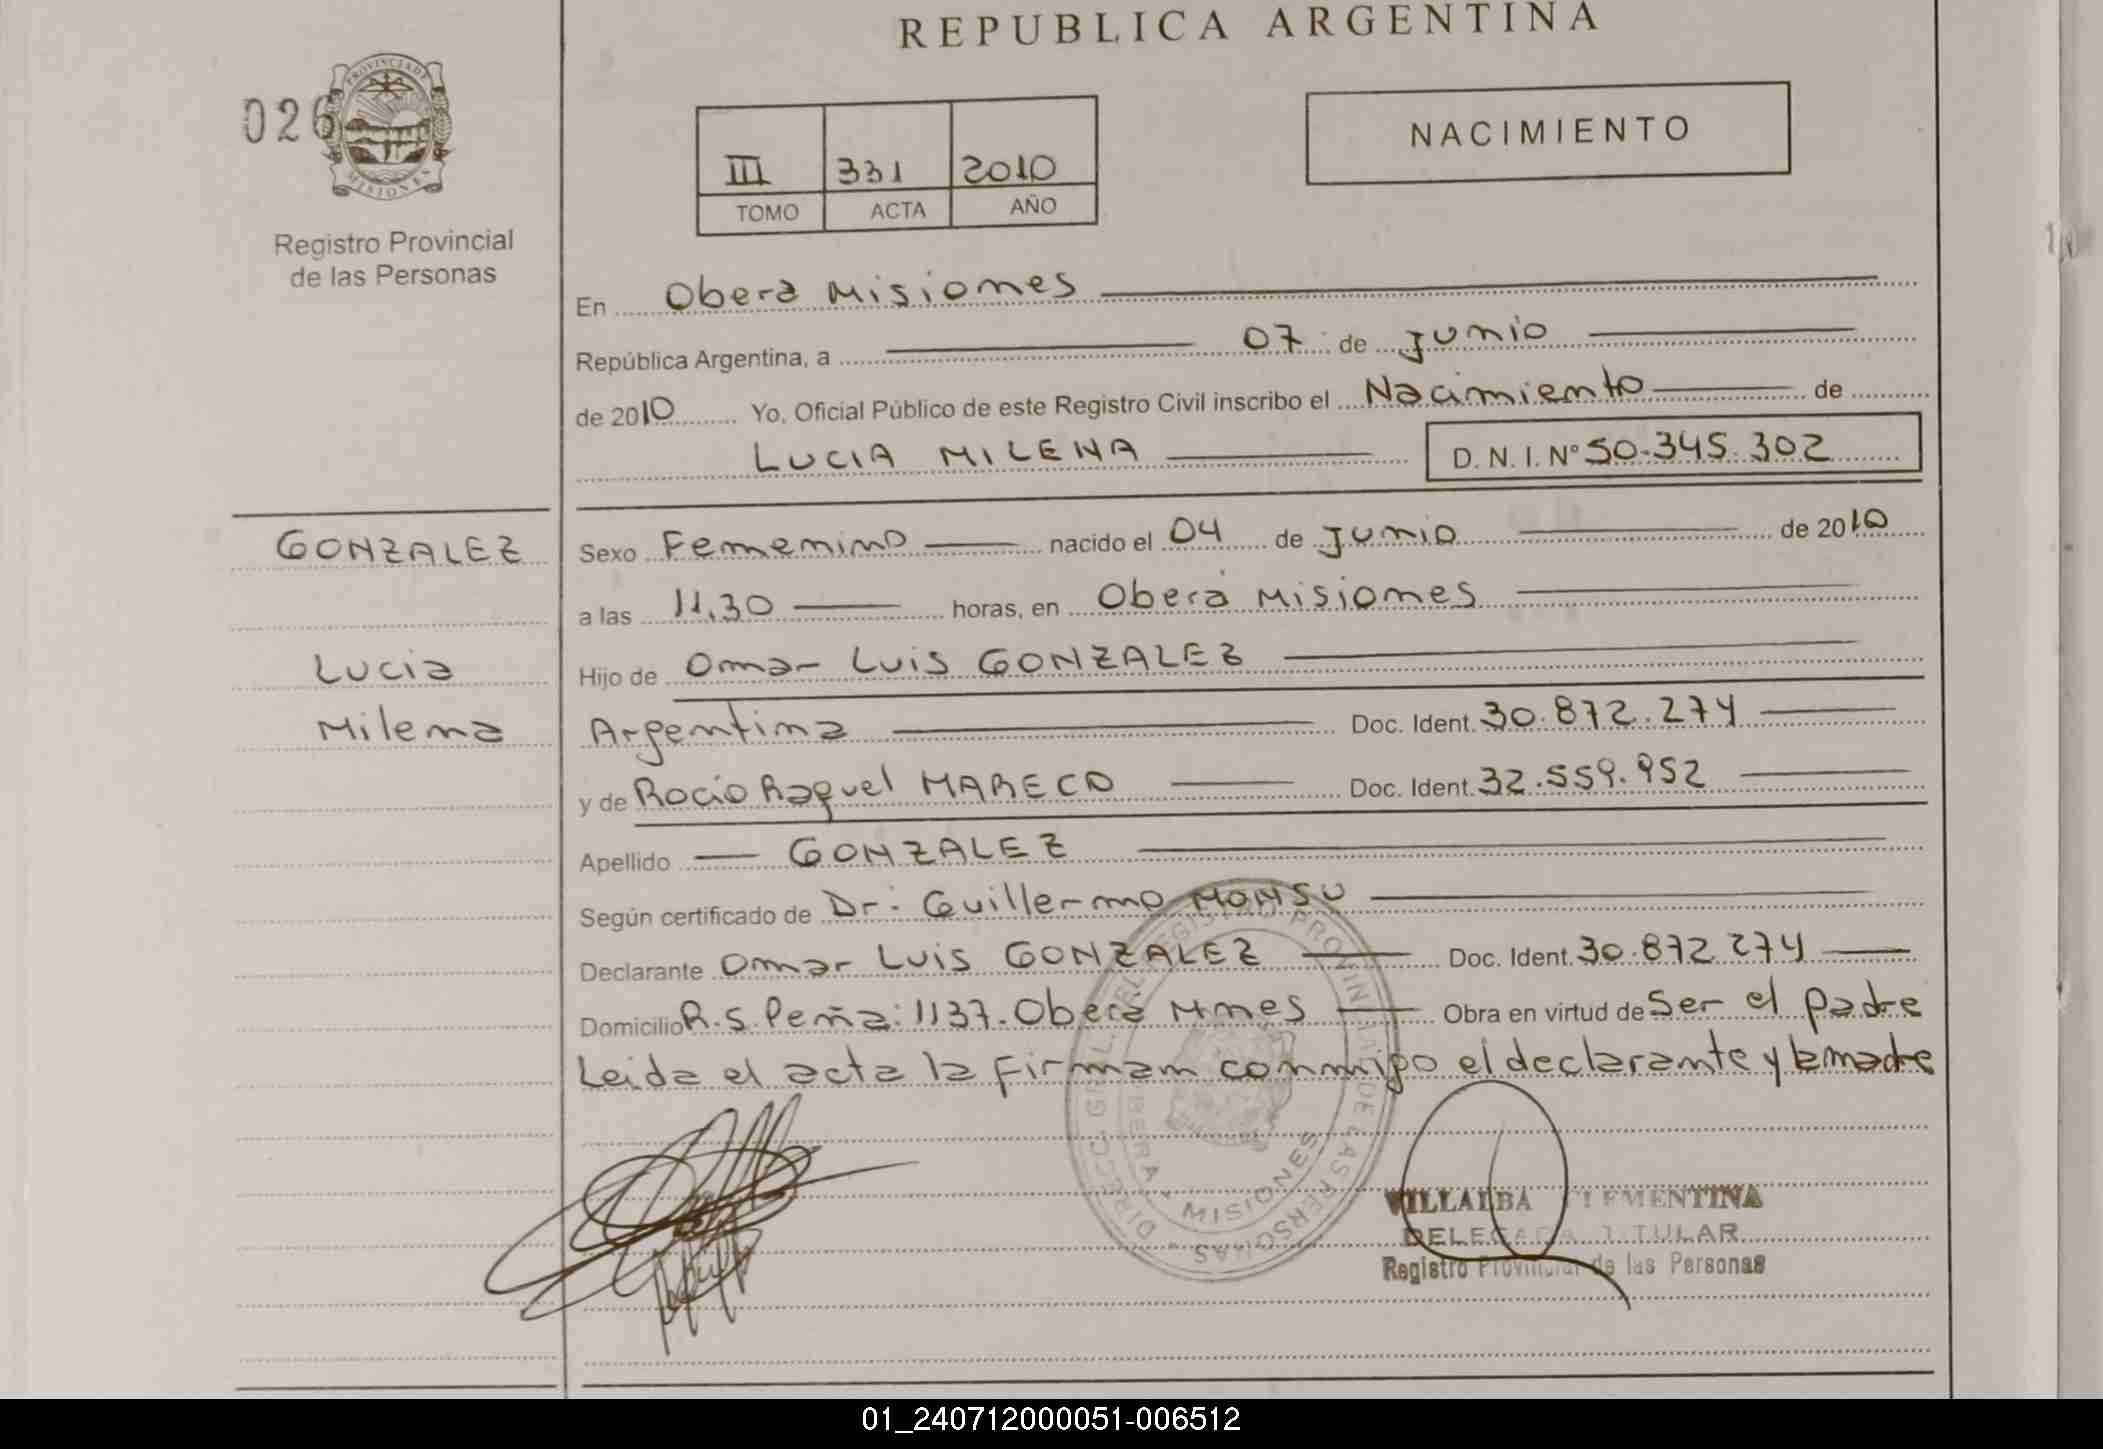 REPUBLICA ARGENTINA
026
PROVINCIA DE
MISIONES
Registro Provincial
de las Personas
III 331 2010
TOMO ACTA AÑO
NACIMIENTO
En Oberá Misiones
República Argentina, a 07 de Junio
de 2010 Yo, Oficial Público de este Registro Civil inscribo el Nacimiento de
LUCIA MILENA D.N.I. Nº 50.345.302
GONZALEZ
Lucia
Milena
Sexo Femenino nacido el 04 de Junio de 2010
a las 11,30 horas, en Oberá Misiones
Hijo de Omar Luis GONZALEZ
Argentina Doc. Ident. 30.872.274
y de Rocio Raquel MARECO Doc. Ident. 32.559.952
Apellido GONZALEZ
Según certificado de Dr. Guillermo MONSU
Declarante Omar Luis GONZALEZ Doc. Ident. 30.872.274
Domicilio R.S. Peña: 1137. Oberá Mnes Obra en virtud de Ser el padre
Leida el acta la firman conmigo el declarante y la madre
DIRECC. GRAL. DEL REGISTRO PROVIN DE LAS PERSONAS
MISIONES
VILLALBA CLEMENTINA
DELEGADA TITULAR
Registro Provincial de las Personas
01_240712000051-006512